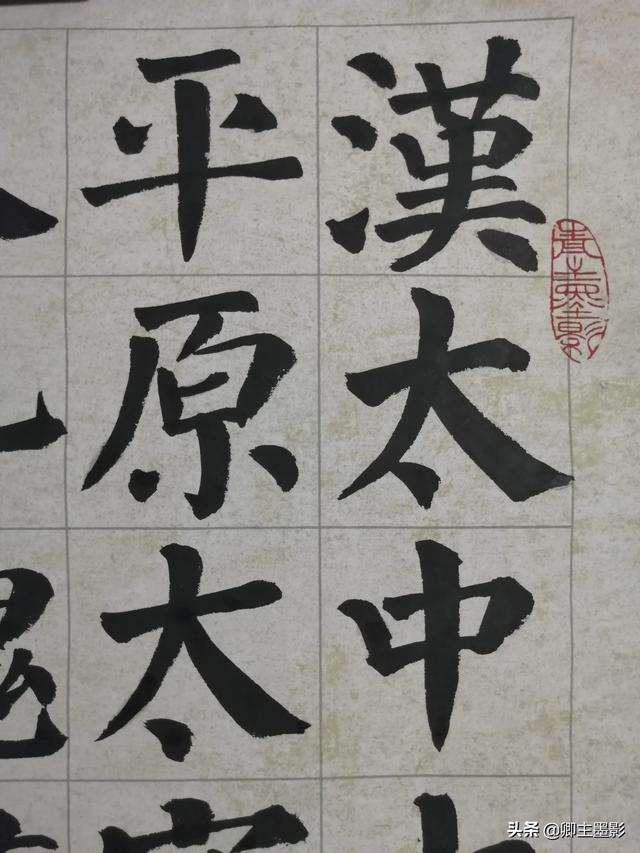 漢太中
平原太
头条 @卿主墨影